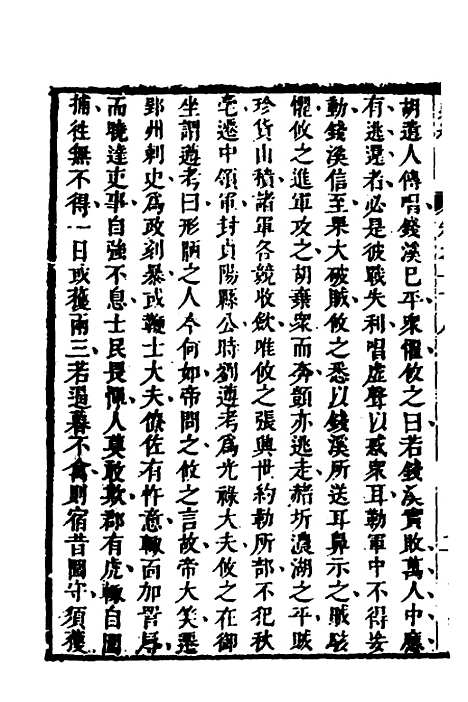 胡遣人傳唱錢溪已平衆懼攸之曰若錢溪實敗萬人中應
有逃還者必是彼戰失利唱虛聲以惑衆耳勒軍中不得妄
動錢溪信至果大破賊攸之悉以錢溪所送耳鼻示之賊駭
懼攸之進軍攻之胡棄衆而奔顗亦逃走赭圻濃湖之平賊
珍貨山積諸軍各競收斂唯攸之張興世約勒所部不犯秋
毫遷中領軍封貞陽縣公時劉遵考爲光祿大夫攸之在御
坐謂遵考曰形陋之人今何如帝問之攸之言故帝大笑遷
郢州刺史爲政刻暴或鞭士大夫僚佐有忤意輒面加詈辱
而曉達吏事自強不息士民畏憚人莫敢欺郡有虎輒自圍
捕往無不得一日或獲兩三若逼暮不禽則宿昔圍守須獲